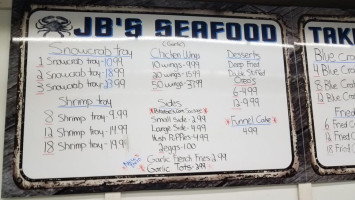 JB'S SEAFOOD
Snowcrab tray
1 Snowcrab tray-10.99
2 Snowcrab tray-18.99
3 Snowcrab tray-23.99
Shrimp tray
8 Shrimp tray - 9.99
12 Shrimp tray - 14.99
18 Shrimp tray - 19.99
(Garlic)
Chicken Wings
10 wings - 9.99
20 wings - 15.99
50 wings - 37.99
Sides
Small Side - 2.99
Large Side - 4.99
Hush Puppies - 4.99
2 eggs - 1.00
Garlic French Fries 2.99
Garlic Tots - 2.99
Desserts
Deep Fried
Double Stuffed
Oreo's
6 - 4.99
12 - 9.99
Funnel Cake
4.99
TAK
Blue C
4 Blue C
6 Blue Cr
8 Blue Cra
12 Blue Cr
Fried
6 Fried
Fried
18